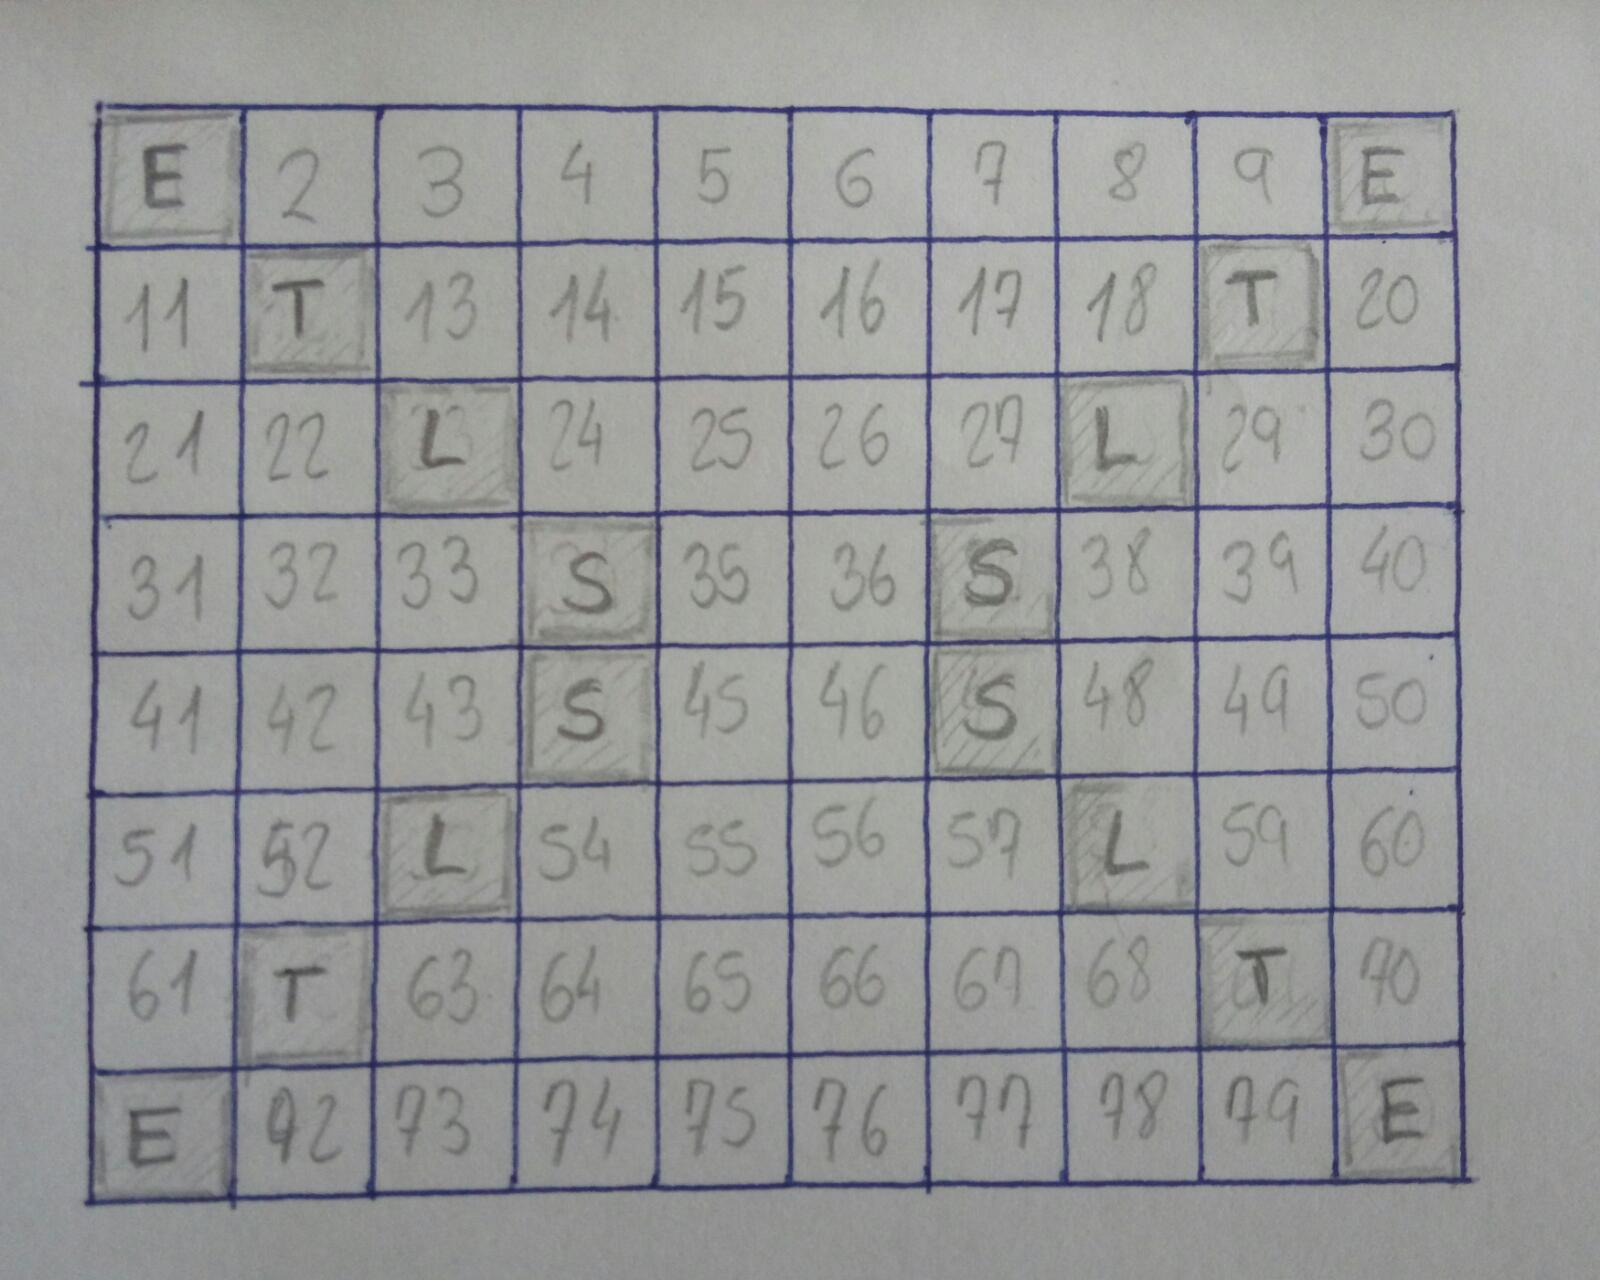 E 2 3 4 5 6 7 8 9 E
11 T 13 14 15 16 17 18 T 20
21 22 L 24 25 26 27 L 29 30
31 32 33 S 35 36 S 38 39 40
41 42 43 S 45 46 S 48 49 50
51 52 L 54 55 56 57 L 59 60
61 T 63 64 65 66 67 68 T 70
E 72 73 74 75 76 77 78 79 E